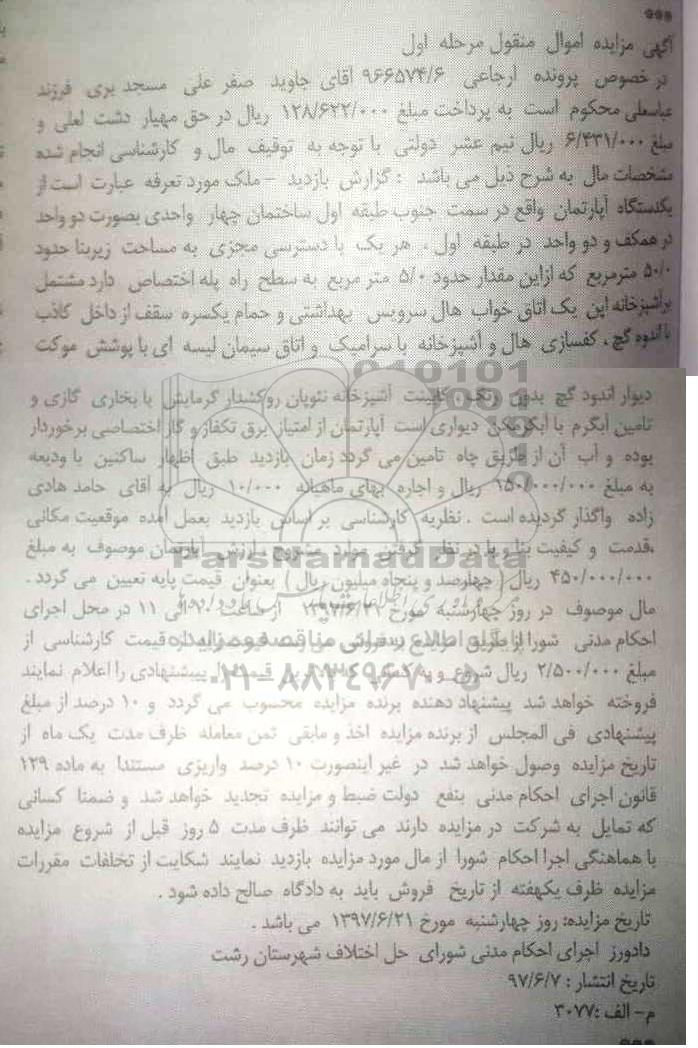 آگهی مزایده اموال منقول مرحله اول
در خصوص پرونده ارجاعی ۹۶۶۵۷۴/۶ آقای جاوید صفر علی مسجد بری فرزند
عباسعلی محکوم است به پرداخت مبلغ ۱۲۸/۶۲۲/۰۰۰ ریال در حق مهیار دشت لعلی و
مبلغ ۶/۴۳۱/۰۰۰ ریال نیم عشر دولتی با توجه به توقیف مال و کارشناسی انجام شده
مشخصات مال به شرح ذیل می باشد : گزارش بازدید – ملک مورد تعرفه عبارت است از
یکدستگاه آپارتمان واقع در سمت جنوب طبقه اول ساختمان چهار واحدی بصورت دو واحد
در همکف و دو واحد در طبقه اول ، هر یک با دسترسی مجزی به مساحت زیربنا حدود
۵۰/۰ مترمربع که ازاین مقدار حدود ۵/۰ متر مربع به سطح راه پله اختصاص دارد مشتمل
برآشپزخانه اپن یک اتاق خواب هال سرویس بهداشتی و حمام یکسره سقف از داخل کاذب
با اندود گچ ، کفسازی هال و آشپزخانه با سرامیک و اتاق سیمان لیسه ای با پوشش موکت
دیوار اندود گچ بدون رنگ ، کابینت آشپزخانه نئوپان روکشدار گرمایش با بخاری گازی و
تامین آبگرم با آبگرمکن دیواری است آپارتمان از امتیاز برق تکفاز و گاز اختصاصی برخوردار
بوده و آب آن از طریق چاه تامین می گردد زمان بازدید طبق اظهار ساکنین با ودیعه
به مبلغ ۱۵۰/۰۰۰/۰۰۰ ریال و اجاره بهای ماهیانه ۱۰/۰۰۰ ریال به آقای حامد هادی
زاده واگذار گردیده است . نظریه کارشناسی بر اساس بازدید بعمل آمده موقعیت مکانی
،قدمت و کیفیت بنا و با در نظر گرفتن موارد مشروح ، ارزش آپارتمان موصوف به مبلغ
۴۵۰/۰۰۰/۰۰۰ ریال ( چهارصد و پنجاه میلیون ریال ) بعنوان قیمت پایه تعیین می گردد .
مال موصوف در روز چهارشنبه مورخ ۱۳۹۷/۶/۲۱ از ساعت ۱۰ الی ۱۱ در محل اجرای
احکام مدنی شورا از طریق مزایده بفروش می رسد قیمت کارشناسی از
مبلغ ۲/۵۰۰/۰۰۰ ریال شروع و به کسانی که بالاترین قیمت پیشنهادی را اعلام نمایند
فروخته خواهد شد پیشنهاد دهنده برنده مزایده محسوب می گردد و ۱۰ درصد از مبلغ
پیشنهادی فی المجلس از برنده مزایده اخذ و مابقی ثمن معامله ظرف مدت یک ماه از
تاریخ مزایده وصول خواهد شد در غیر اینصورت ۱۰ درصد واریزی مستندا به ماده ۱۲۹
قانون اجرای احکام مدنی بنفع دولت ضبط و مزایده تجدید خواهد شد و ضمنا کسانی
که تمایل به شرکت در مزایده دارند می توانند ظرف مدت ۵ روز قبل از شروع مزایده
با هماهنگی اجرا احکام شورا از مال مورد مزایده بازدید نمایند شکایت از تخلفات مقررات
مزایده ظرف یکهفته از تاریخ فروش باید به دادگاه صالح داده شود .
تاریخ مزایده: روز چهارشنبه مورخ ۱۳۹۷/۶/۲۱ می باشد .
دادورز اجرای احکام مدنی شورای حل اختلاف شهرستان رشت
تاریخ انتشار : ۹۷/۶/۷
م- الف :۳۰۷۷
ParsNamadData
پایگاه اطلاع رسانی مناقصه و مزایده
۰۲۱-۸۸۳۴۹۶۷۰-۵